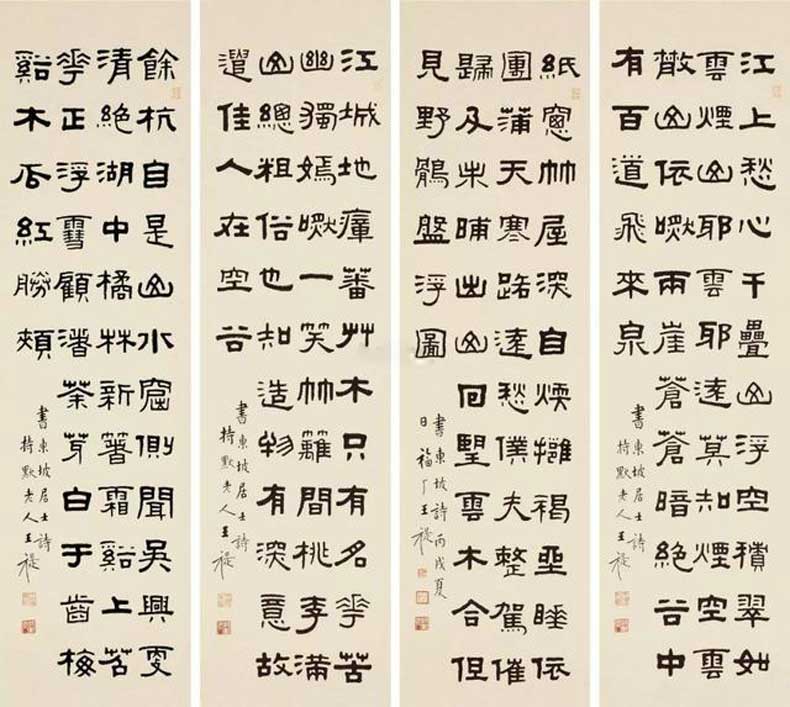 江上愁心千疊山浮空積翠如
雲煙山耶雲耶遠莫知煙空雲
散山依然兩崖蒼蒼暗絕谷中
有百道飛來泉
書東坡居士詩
持默老人王禔
紙窗竹屋深自煗擁褐坐睡依
團蒲天寒路遠愁僕夫整駕催
歸及未晡出山回望雲木合但
見野鶻盤浮圖
書東坡詩丙戌夏
日福厂王禔
江城地瘴蕃艸木只有名華苦
幽獨嫣然一笑竹籬間桃李滿
山總粗俗也知造物有深意故
遣佳人在空谷
書東坡居士詩
持默老人王禔
餘杭自是山水窟側聞吳興更
清絕湖中橘林新著霜谿上苕
華正浮雪顧渚茶芽白于齒梅
谿木瓜紅勝頰
書東坡居士詩
持默老人王禔